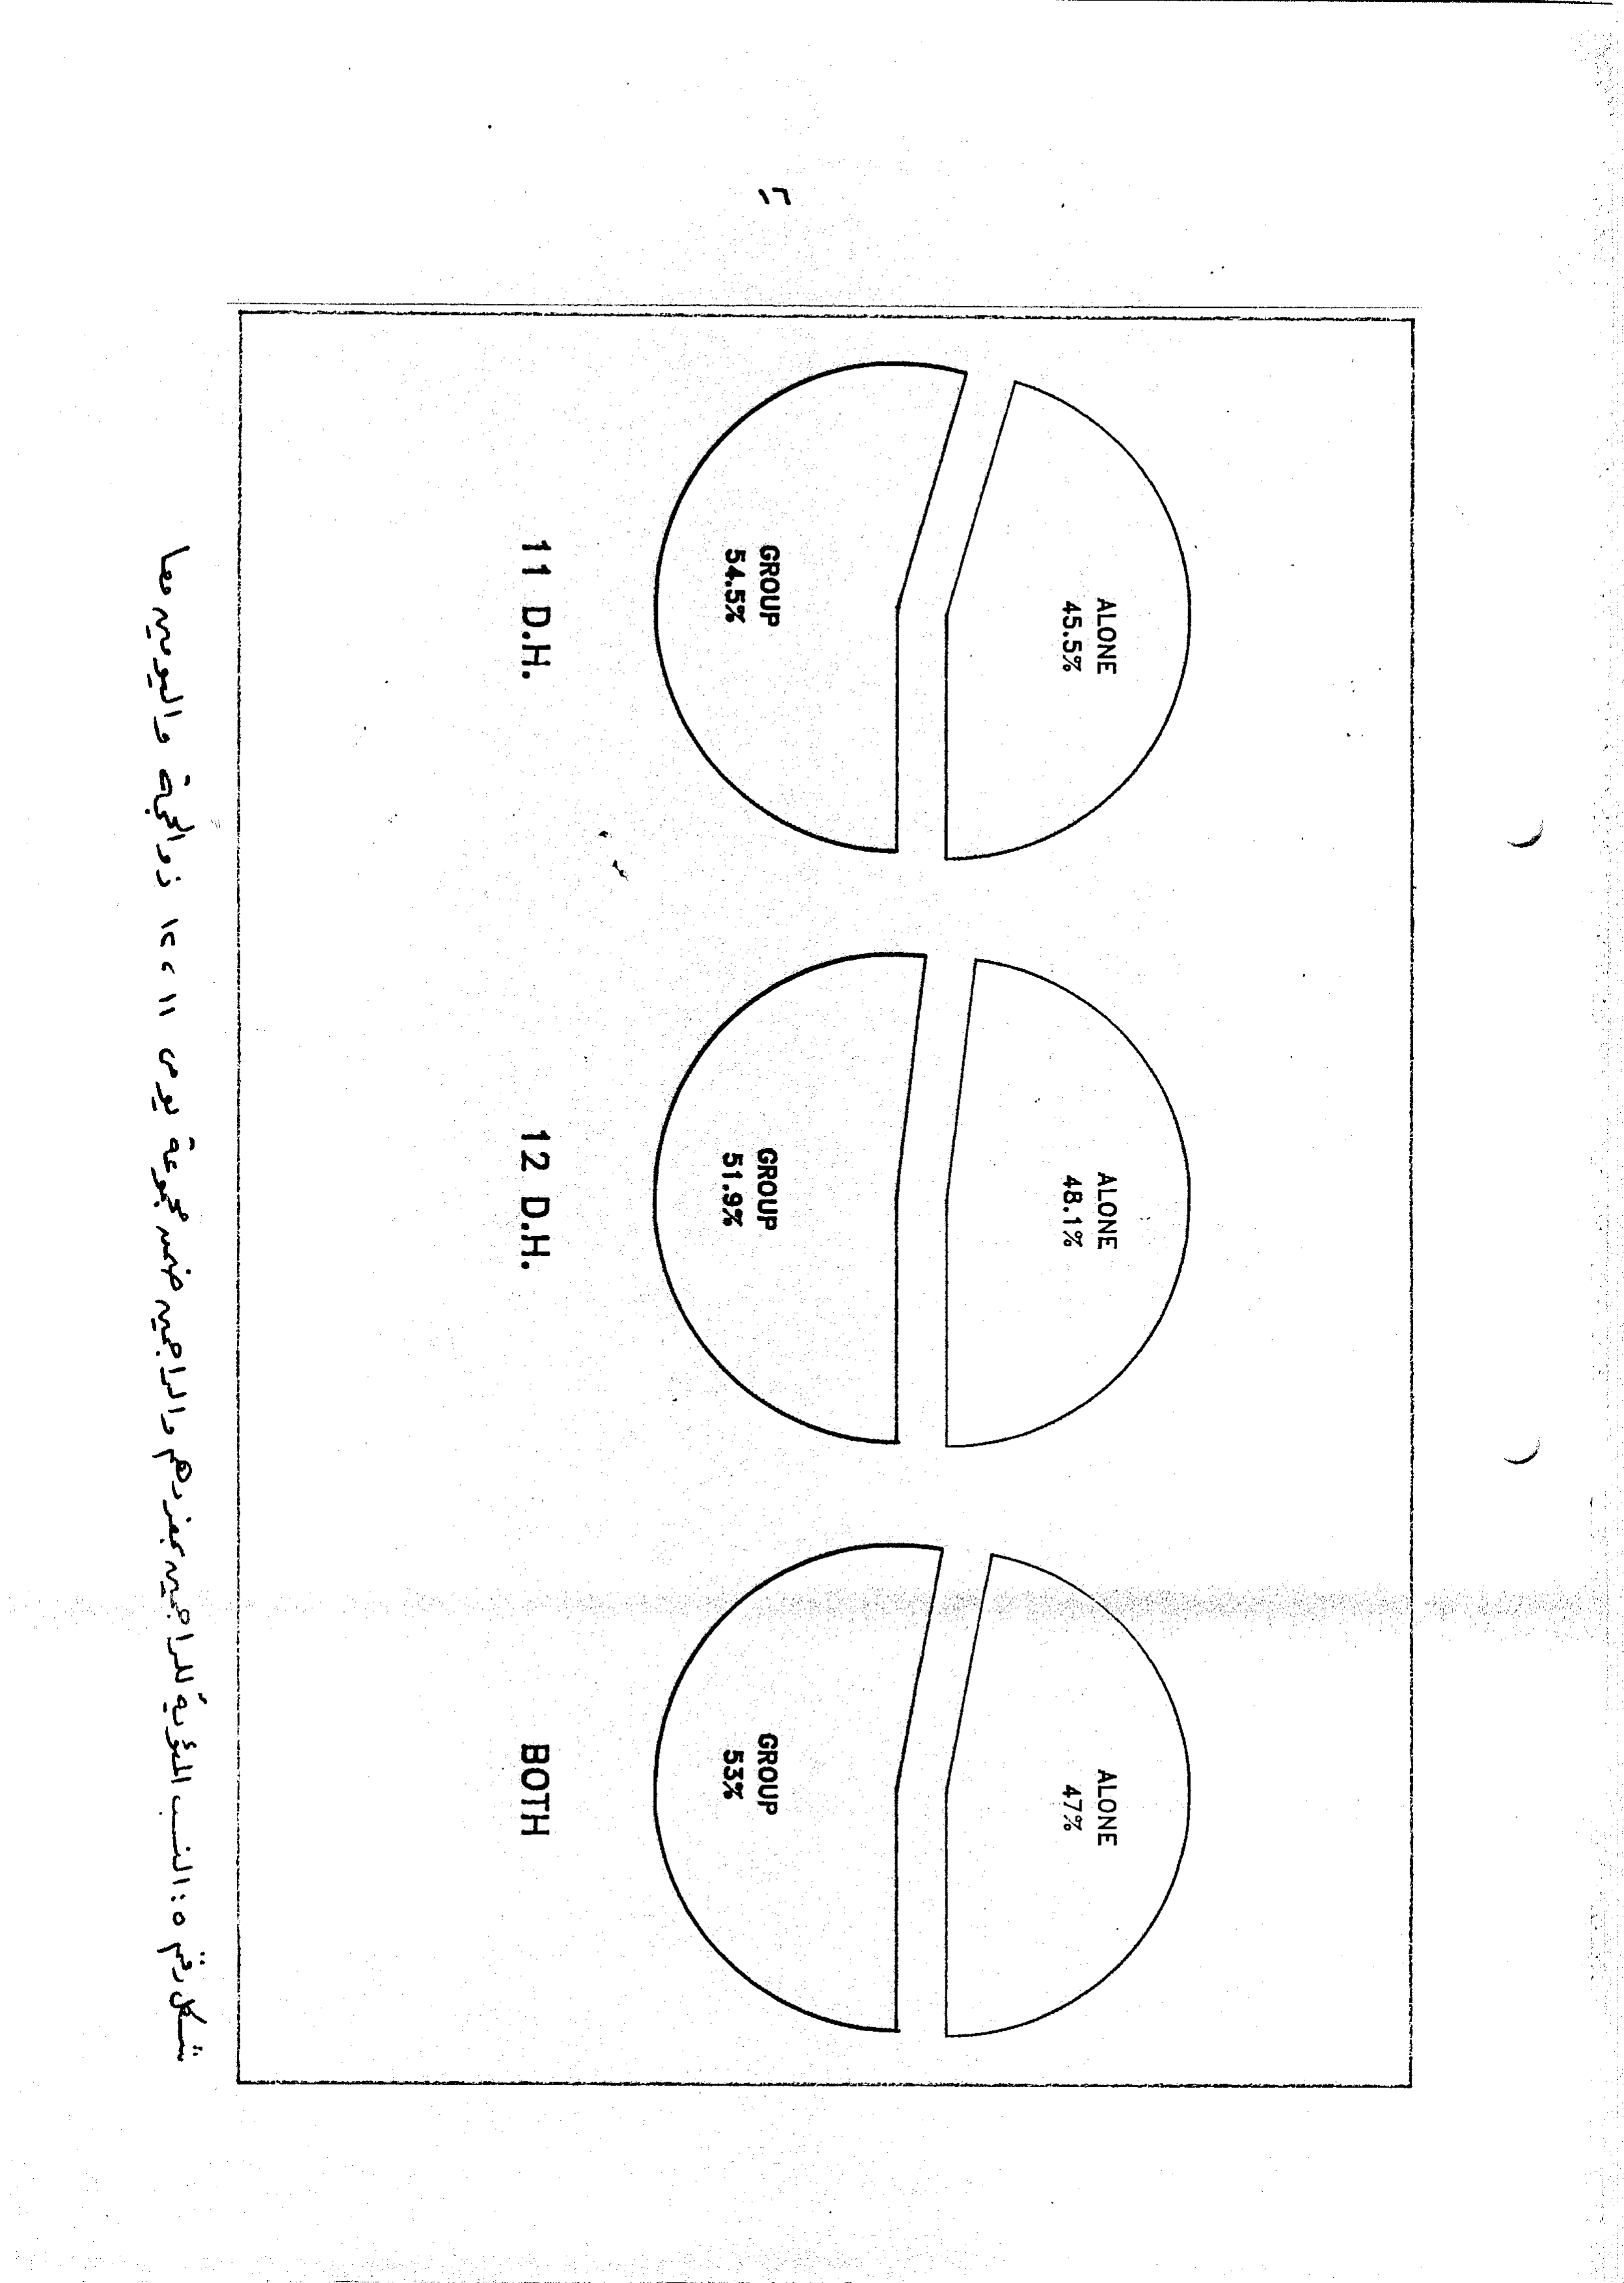 ١٦
ALONE
45.5%
GROUP
54.5%
11 D.H.
ALONE
48.1%
GROUP
51.9%
12 D.H.
ALONE
47%
GROUP
53%
BOTH
شكل رقم ٥ : النسب المئوية للراجمين بمفردهم والراجمين ضمن مجموعة يومى ١١ ، ١٢ ذو الحجة واليومين معا